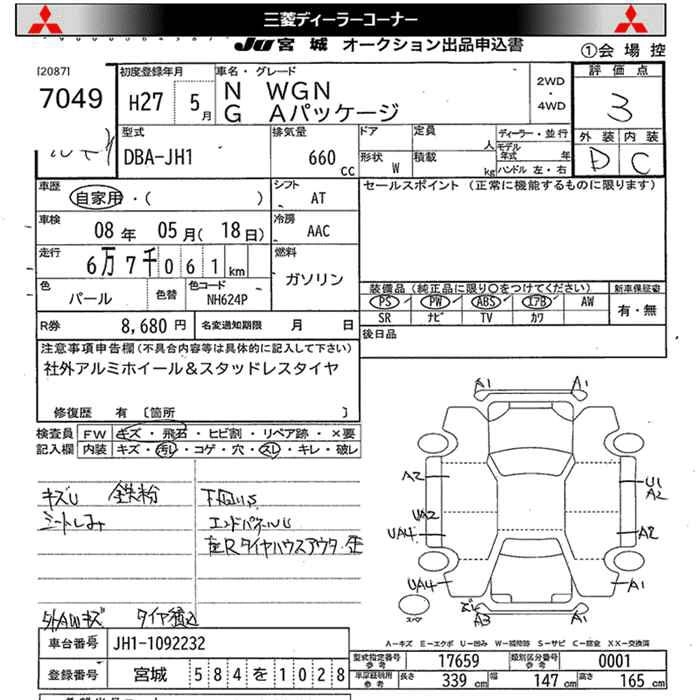 三菱ディーラーコーナー
JU 宮城 オークション出品申込書
①会場控
[2087]
7049
初度登録年月
H27 5月
車名・グレード
N WGN
G Aパッケージ
2WD
・
4WD
評価点
3
外装 内装
D C
型式
DBA-JH1
排気量
660 cc
ドア 定員 人
形状 W 積載 kg
ディーラー・並行
モデル年式 年
ハンドル 左・右
車歴
自家用・( )
シフト
AT
セールスポイント (正常に機能するものに限ります)
車検
08年 05月(18日)
冷房
AAC
走行
6万7千061km
燃料
ガソリン
色
パール
色替
色コード
NH624P
装備品(純正品に限り○をつけてください)
PS PW ABS エアB AW
SR ナビ TV カワ
新車保証書
有・無
R券 8,680円
名変通知期限 月 日
後日品
注意事項申告欄(不具合内容等は具体的に記入して下さい)
社外アルミホイール&スタッドレスタイヤ
修復歴 有 〔箇所 〕
検査員 FW キズ・飛石・ヒビ割・リペア跡・×要
記入欄 内装 キズ・汚れ・コゲ・穴・スレ・キレ・破レ
キズU 鉄粉
シートしみ
下回りS
エンドパネルU
左Rタイヤハウスアウタ
外AWキズ タイヤ積込
A1 A1
A2 U1
A2
UA2
UA4 A2
UA4 A1
A3 A1
スペア
A−キズ E−エクボ U−凹み W−補修跡 S−サビ C−腐食 XX−交換済
車台番号 JH1-1092232
登録番号 宮城 584を1028
型式指定番号
参考
17659
類別区分番号
参考
0001
車庫証明用
参考
長さ 339cm 幅 147cm 高さ 165cm